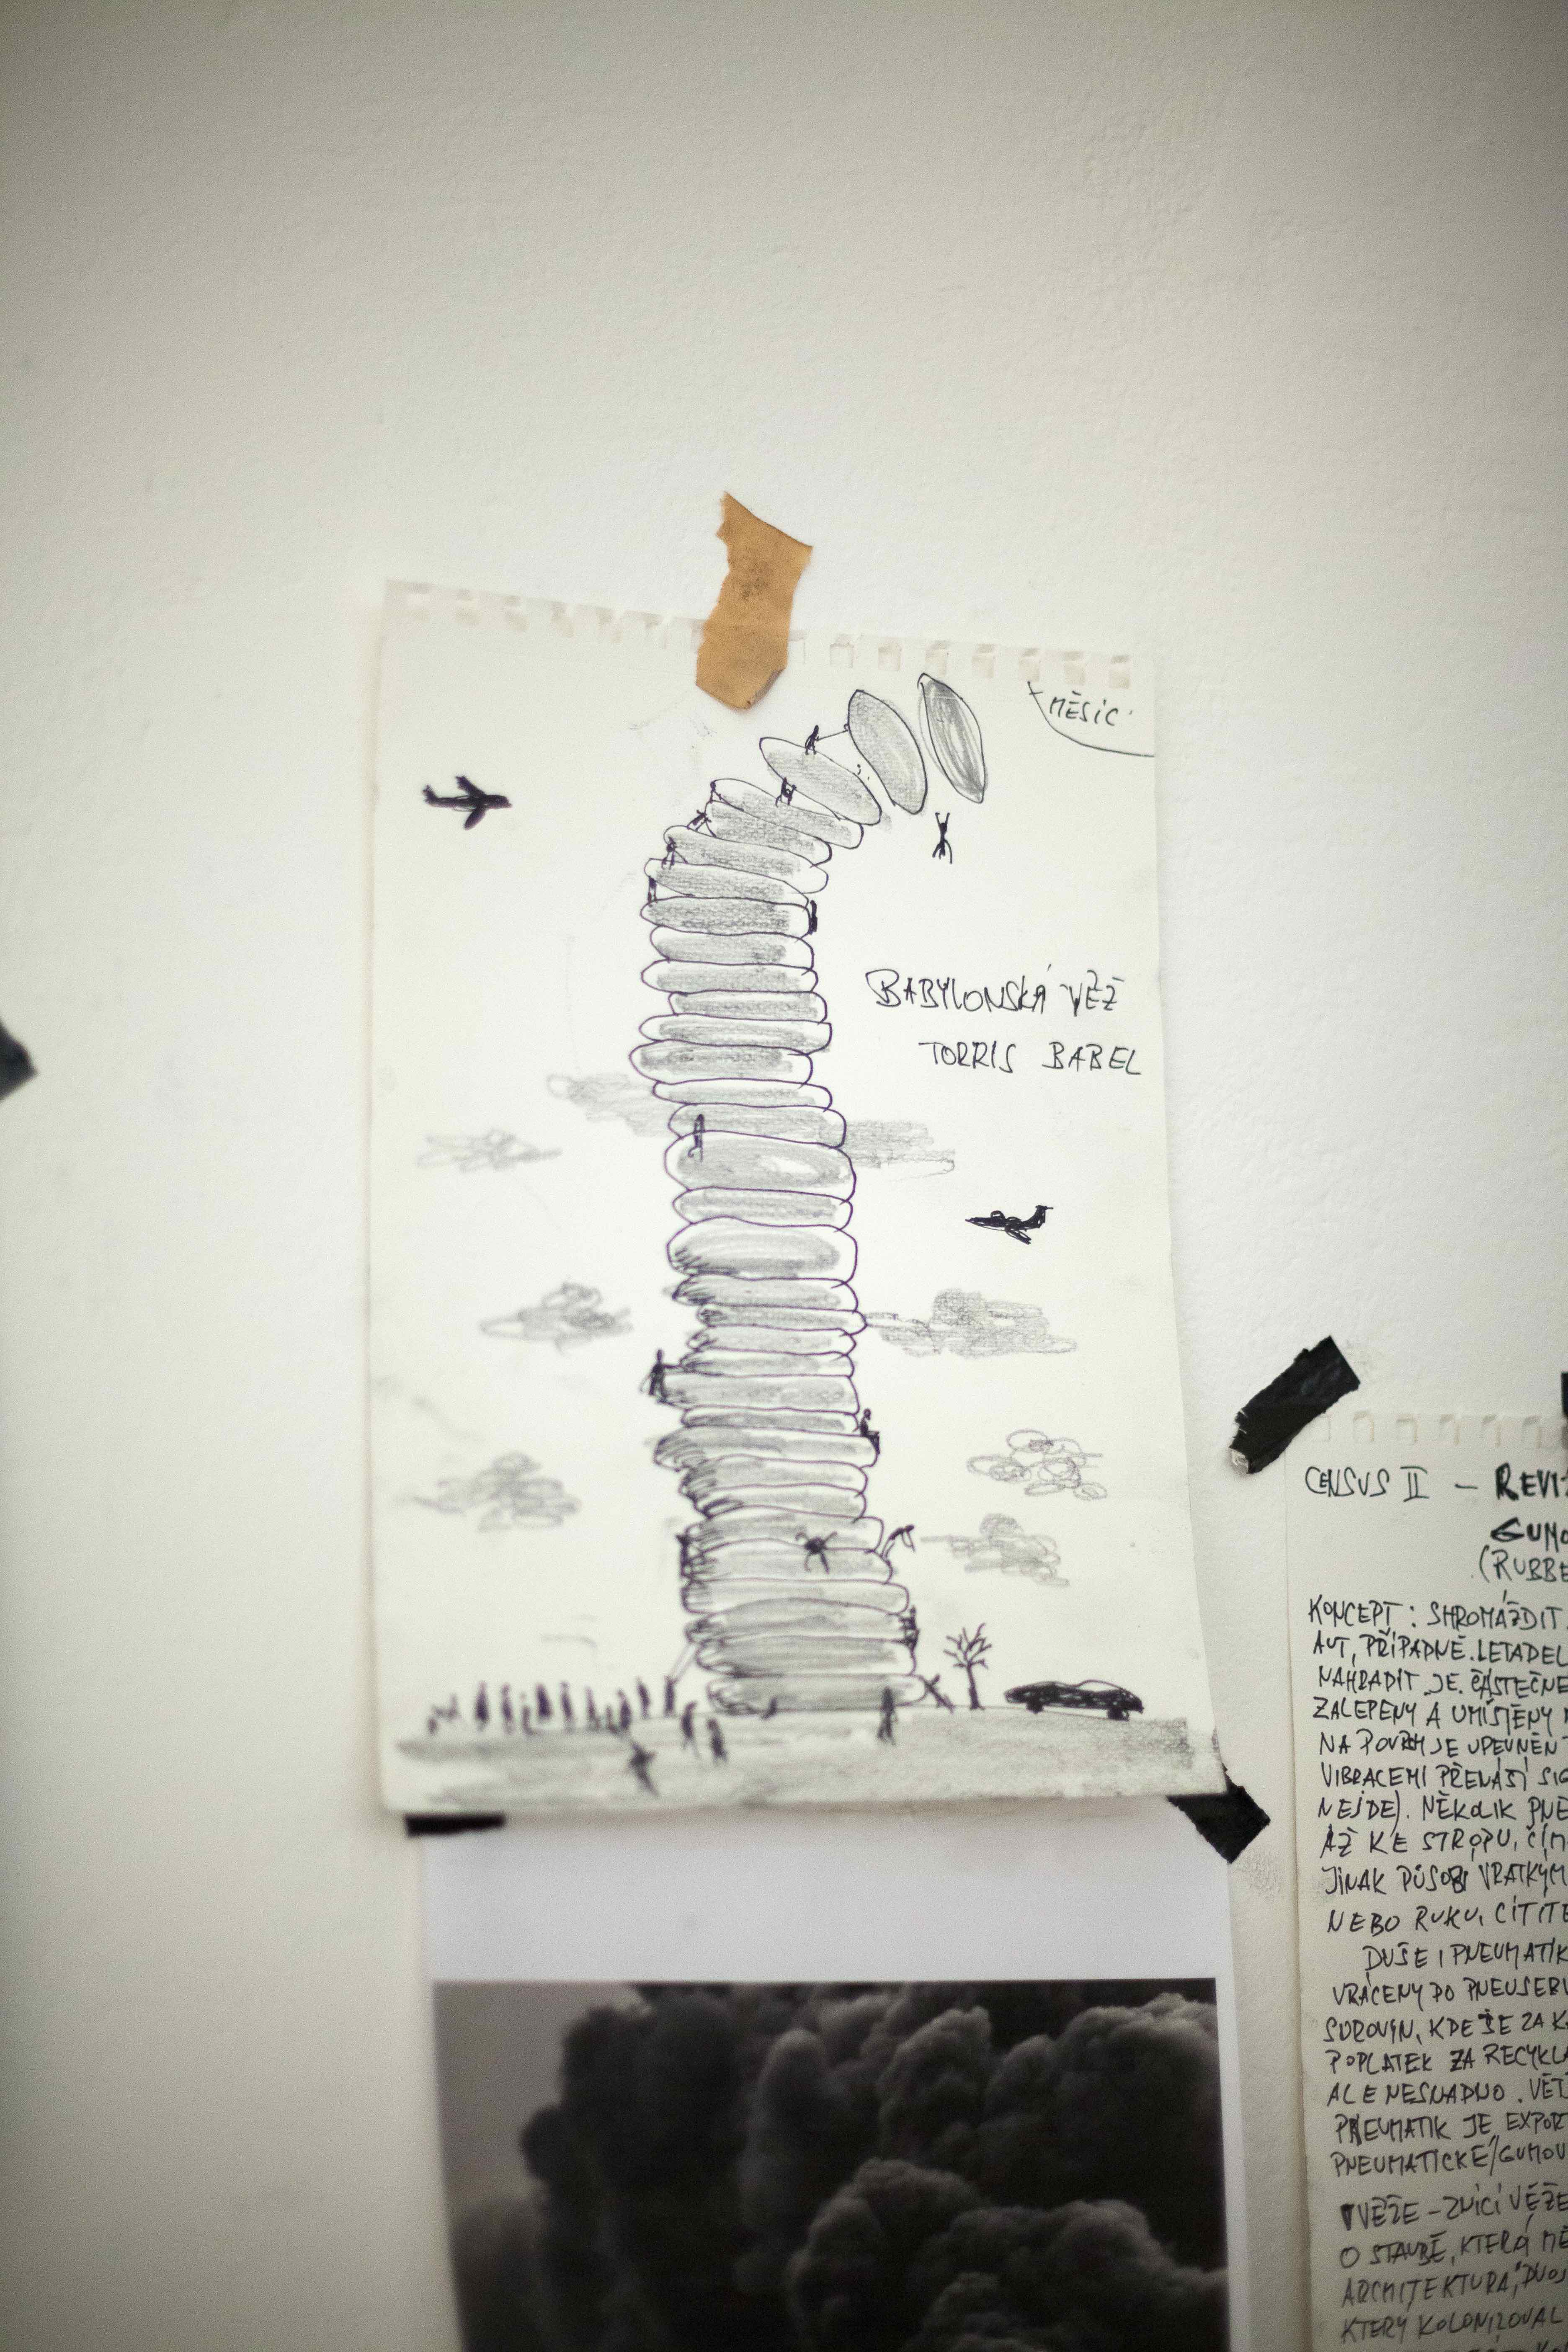 MĚSÍC
BABYLONSKÁ VĚŽ
TORRIS BABEL
CENSUS II – REVI
GUMO
(RUBBE
KONCEPT: SHROMÁŽDIT
AUT, PŘÍPADNĚ. LETADEL
NAHRADIT JE ČÁSTEČNĚ
ZALEPENY A UMÍSTĚNY
NA POVRH JE UPEVNĚN
VIBRACEMI PŘENÁŠÍ SIG
NEJDE). NĚKOLIK PNE
AŽ KE STROPU, ČÍM
JINAK PŮSOBÍ VRATKÝM
NEBO RUKU, CÍTITE
DUŠE I PNEUMATIK
VRÁCENY DO PNEUSERV
SUROVIN, KDE SE ZA K
POPLATEK ZA RECYKLA
ALE NESNADNO. VĚT
PNEUMATIK JE EXPOR
PNEUMATICKÉ/GUMOV
VĚŽE – ZNIČÍ VĚŽE
O STAVBĚ, KTERÁ MĚ
ARCHITEKTURA,
KTERÝ KOLONIZOVAL